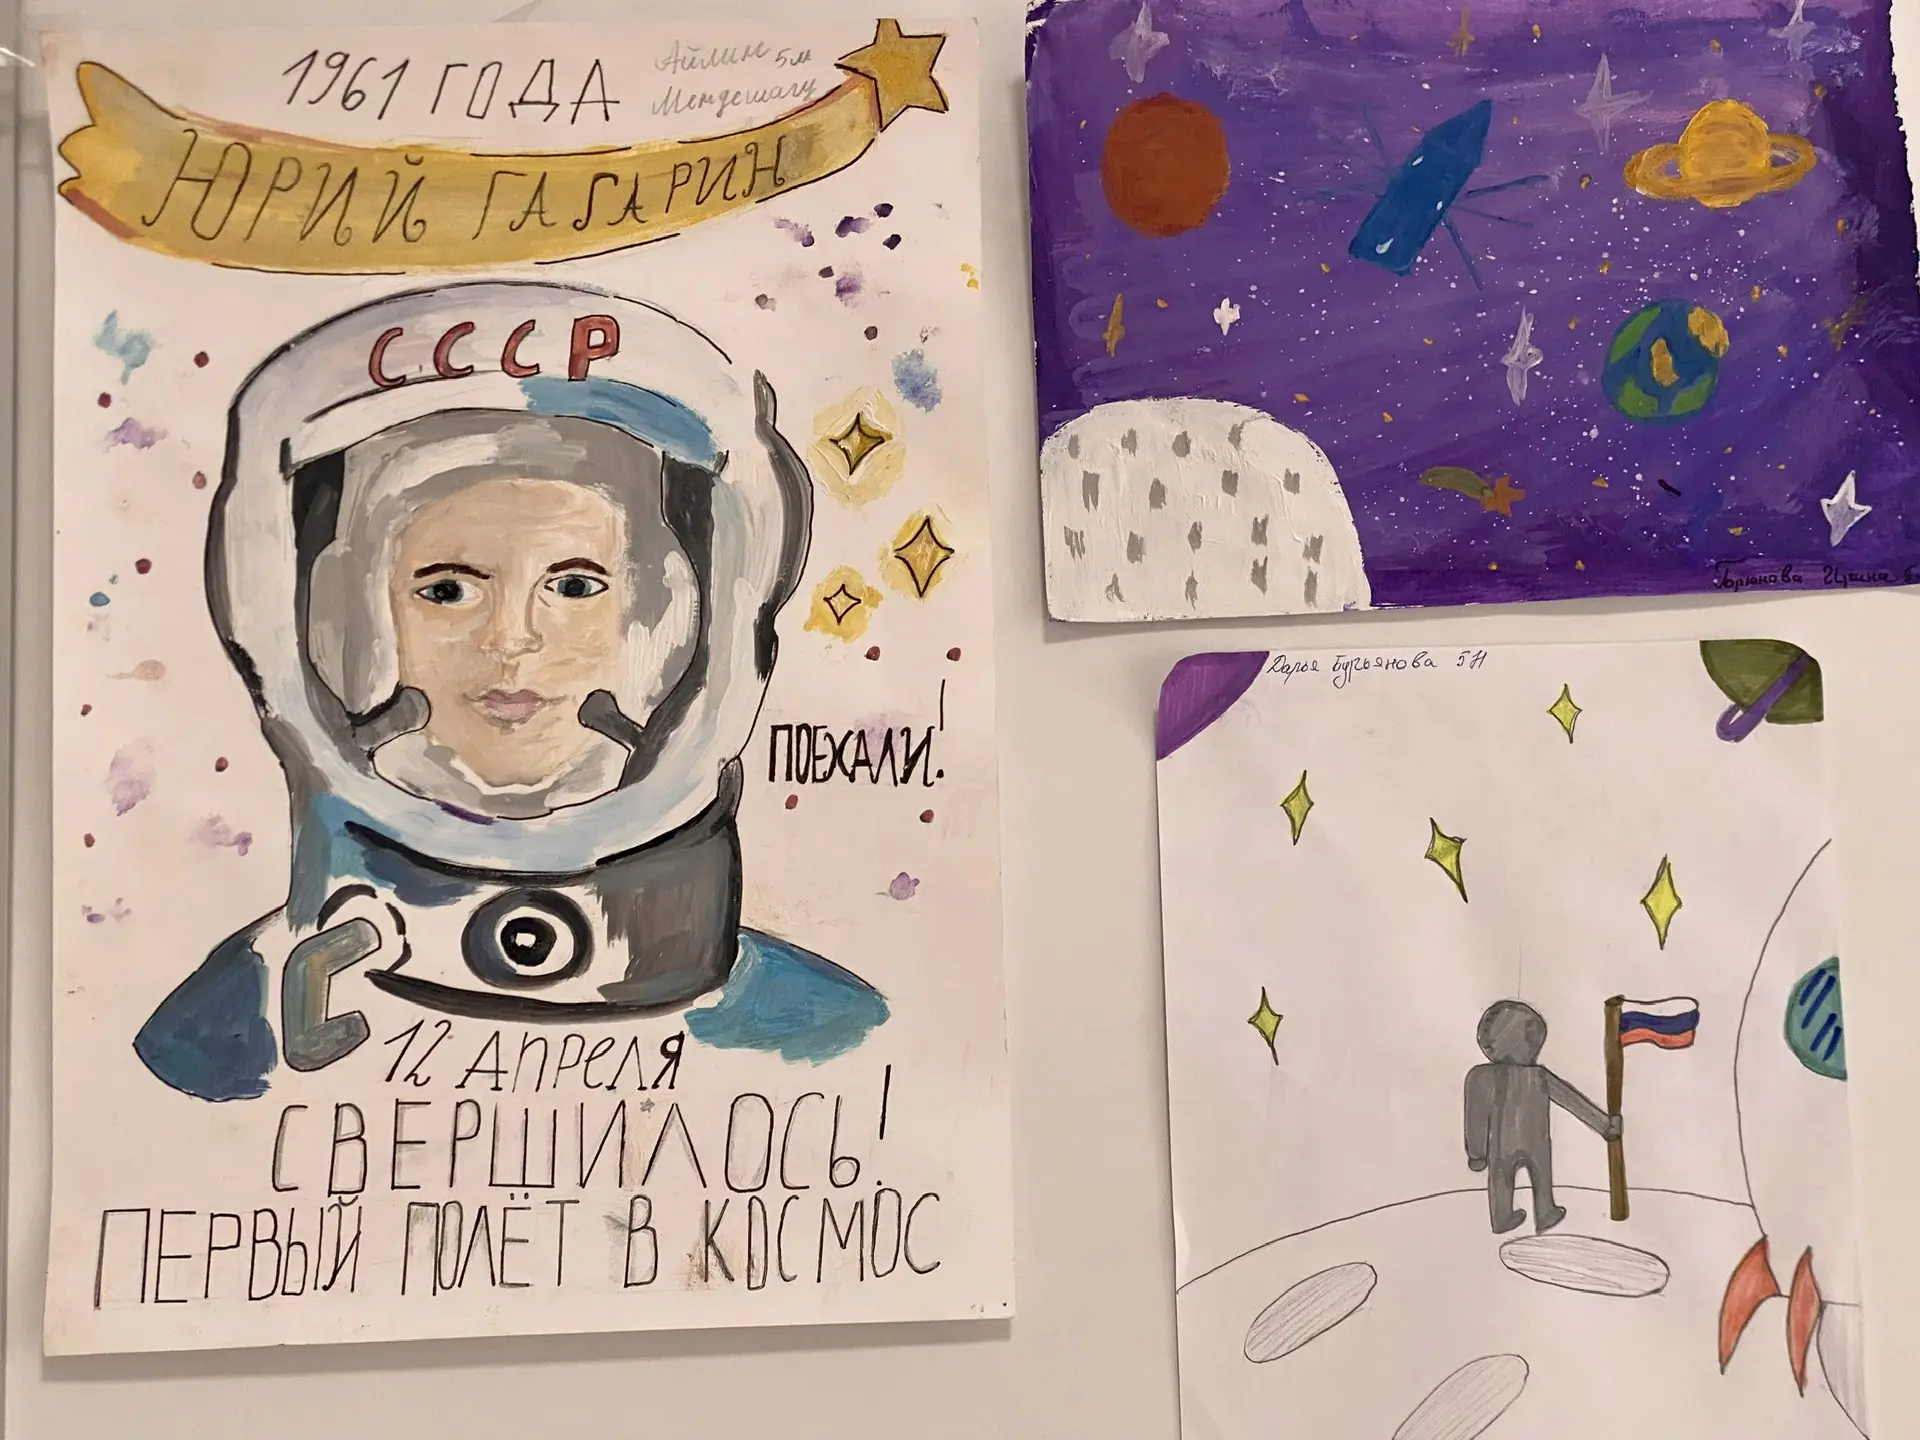 1961 ГОДА
Айлин 5м
ЮРИЙ ГАГАРИН
СССР
ПОЕХАЛИ!
12 АПРЕЛЯ
СВЕРШИЛОСЬ!
ПЕРВЫЙ ПОЛЁТ В КОСМОС
Горюнова Ирина
Дарья Бурьянова 5Н